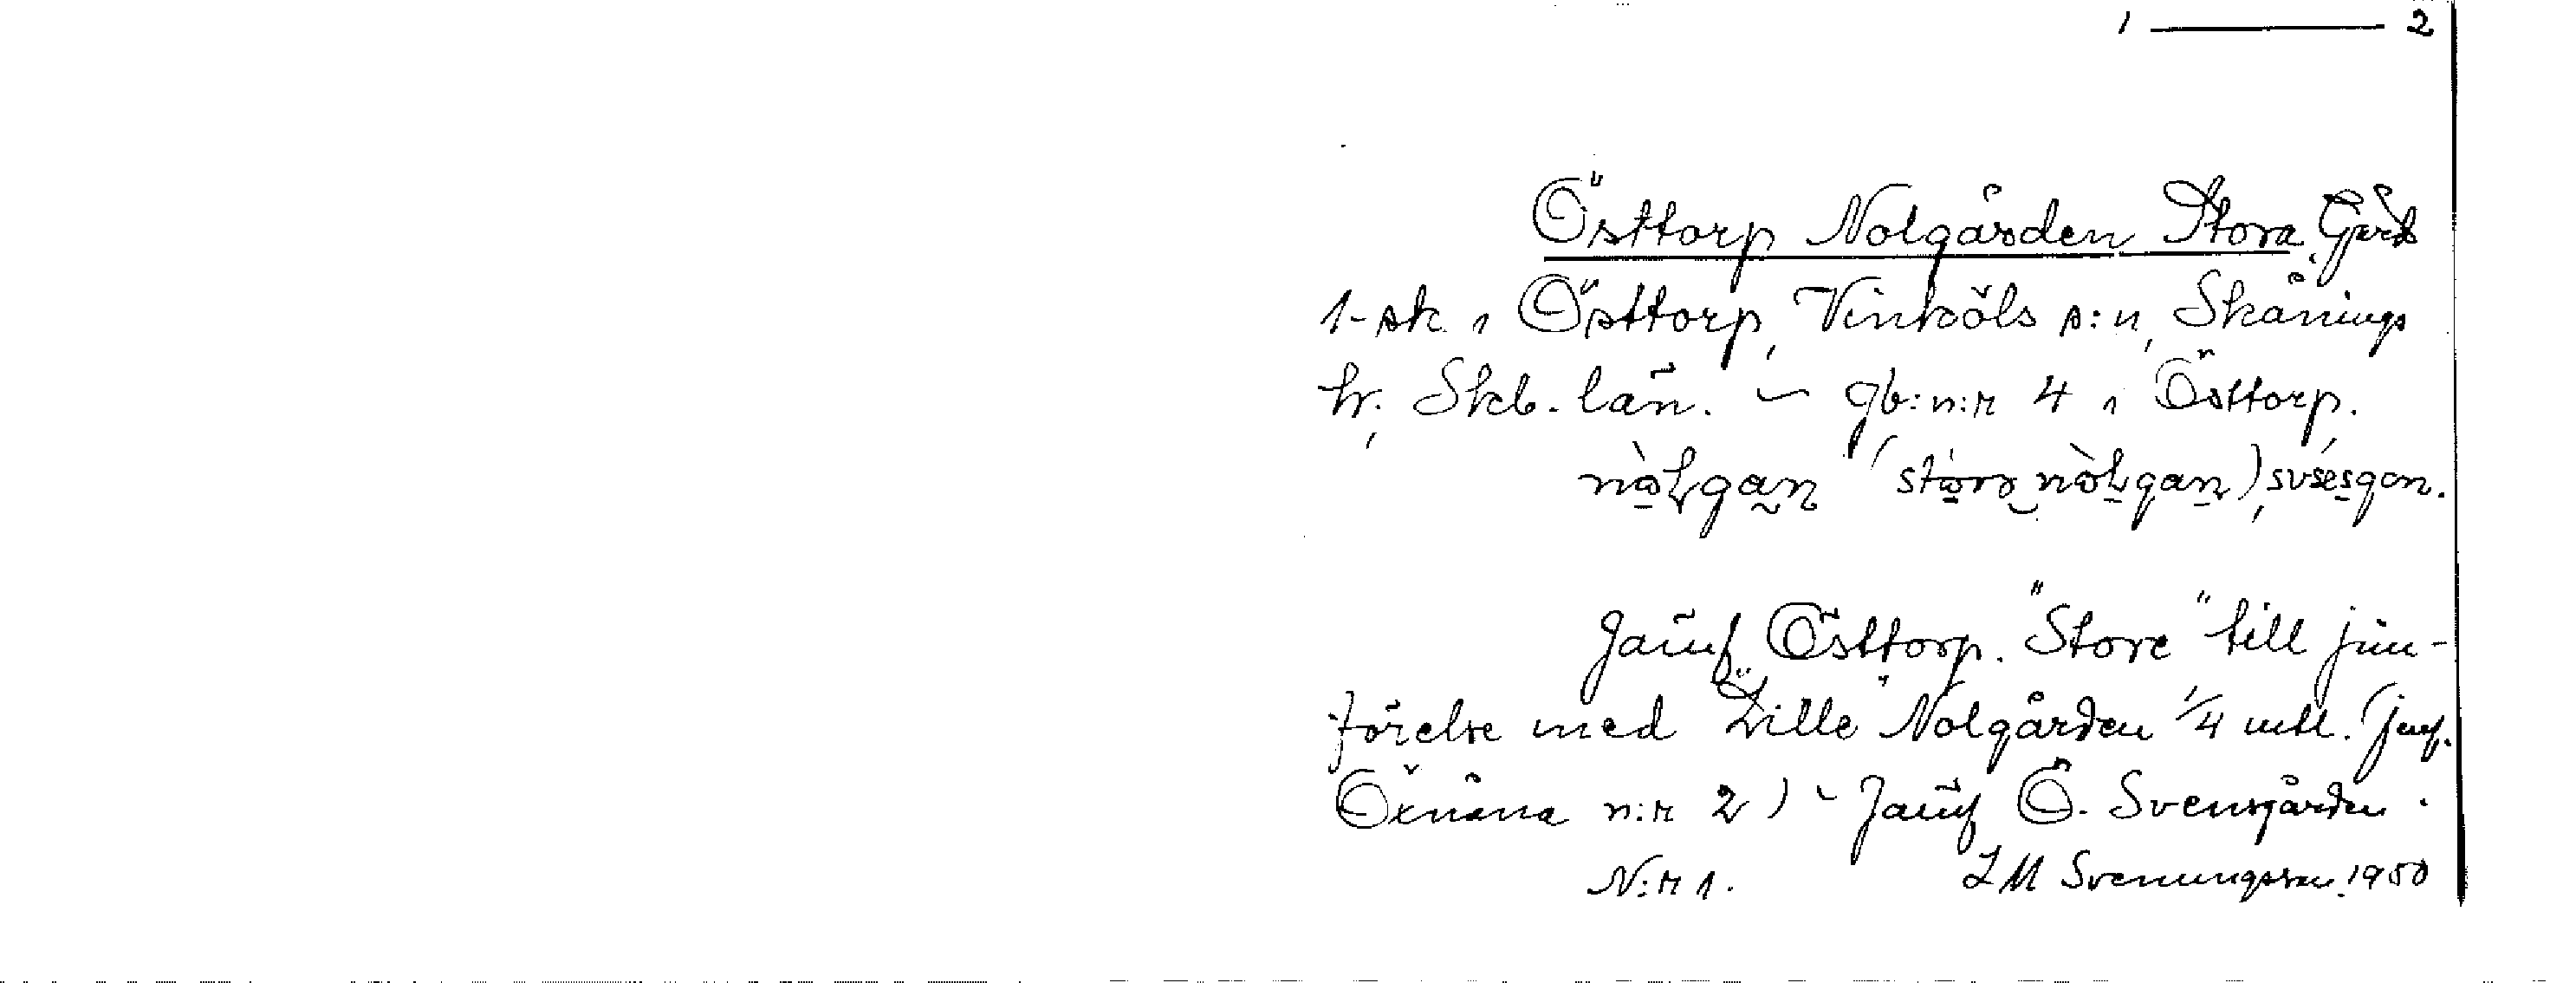 1 — 2
Östtorp Nolgården Stora Gård
1-sk i Östtorp, Vinköls s:n, Skånings
hr. Skb. län. – gb:n:r 4 i Östtorp.
nòlgan (stòrə nòlgan),
Jämf Östtorp. "Store" till jäm-
förelse med "Lille" Nolgården 1/4 mtl. (jmf.
n:r 2) – Jämf Ö. Svensgården.
N:r 1. I M Svenungsson 1950